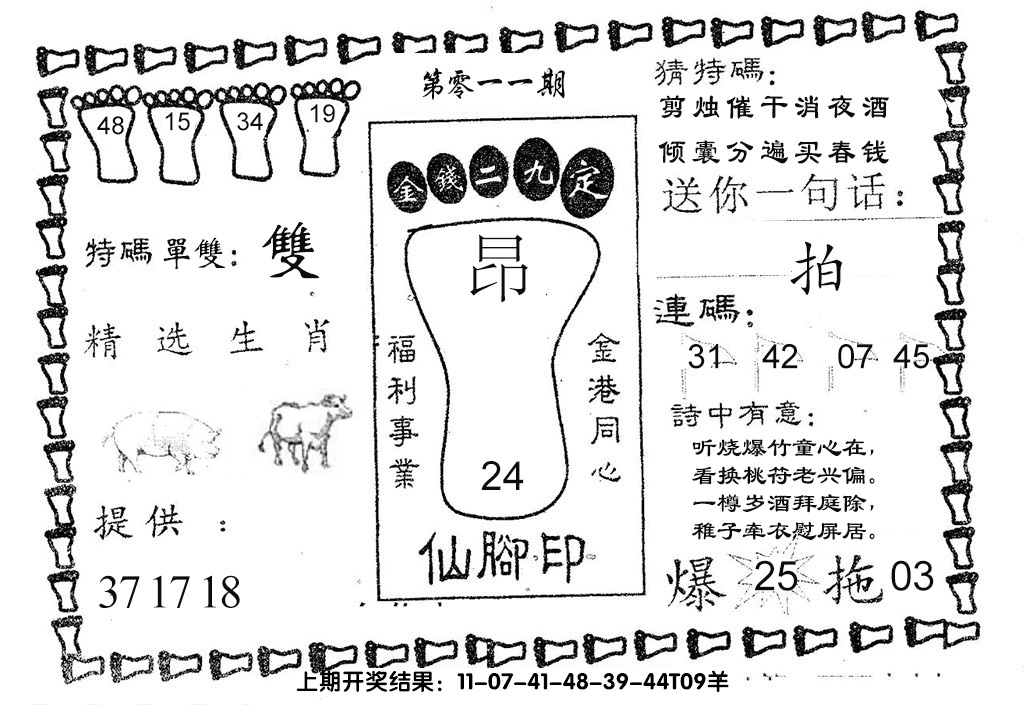 第零一一期
48 15 34 19
特碼單雙：雙
精选生肖
提供：
37 17 18
金錢二九定
昂
福利事業
金港同心
24
仙腳印
猜特碼：
剪烛催干消夜酒
倾囊分遍买春钱
送你一句话：
拍
連碼：
31 42 07 45
詩中有意：
听烧爆竹童心在，
看换桃符老兴偏。
一樽岁酒拜庭除，
稚子牵衣慰屏居。
爆 25 拖 03
上期开奖结果：11-07-41-48-39-44T09羊